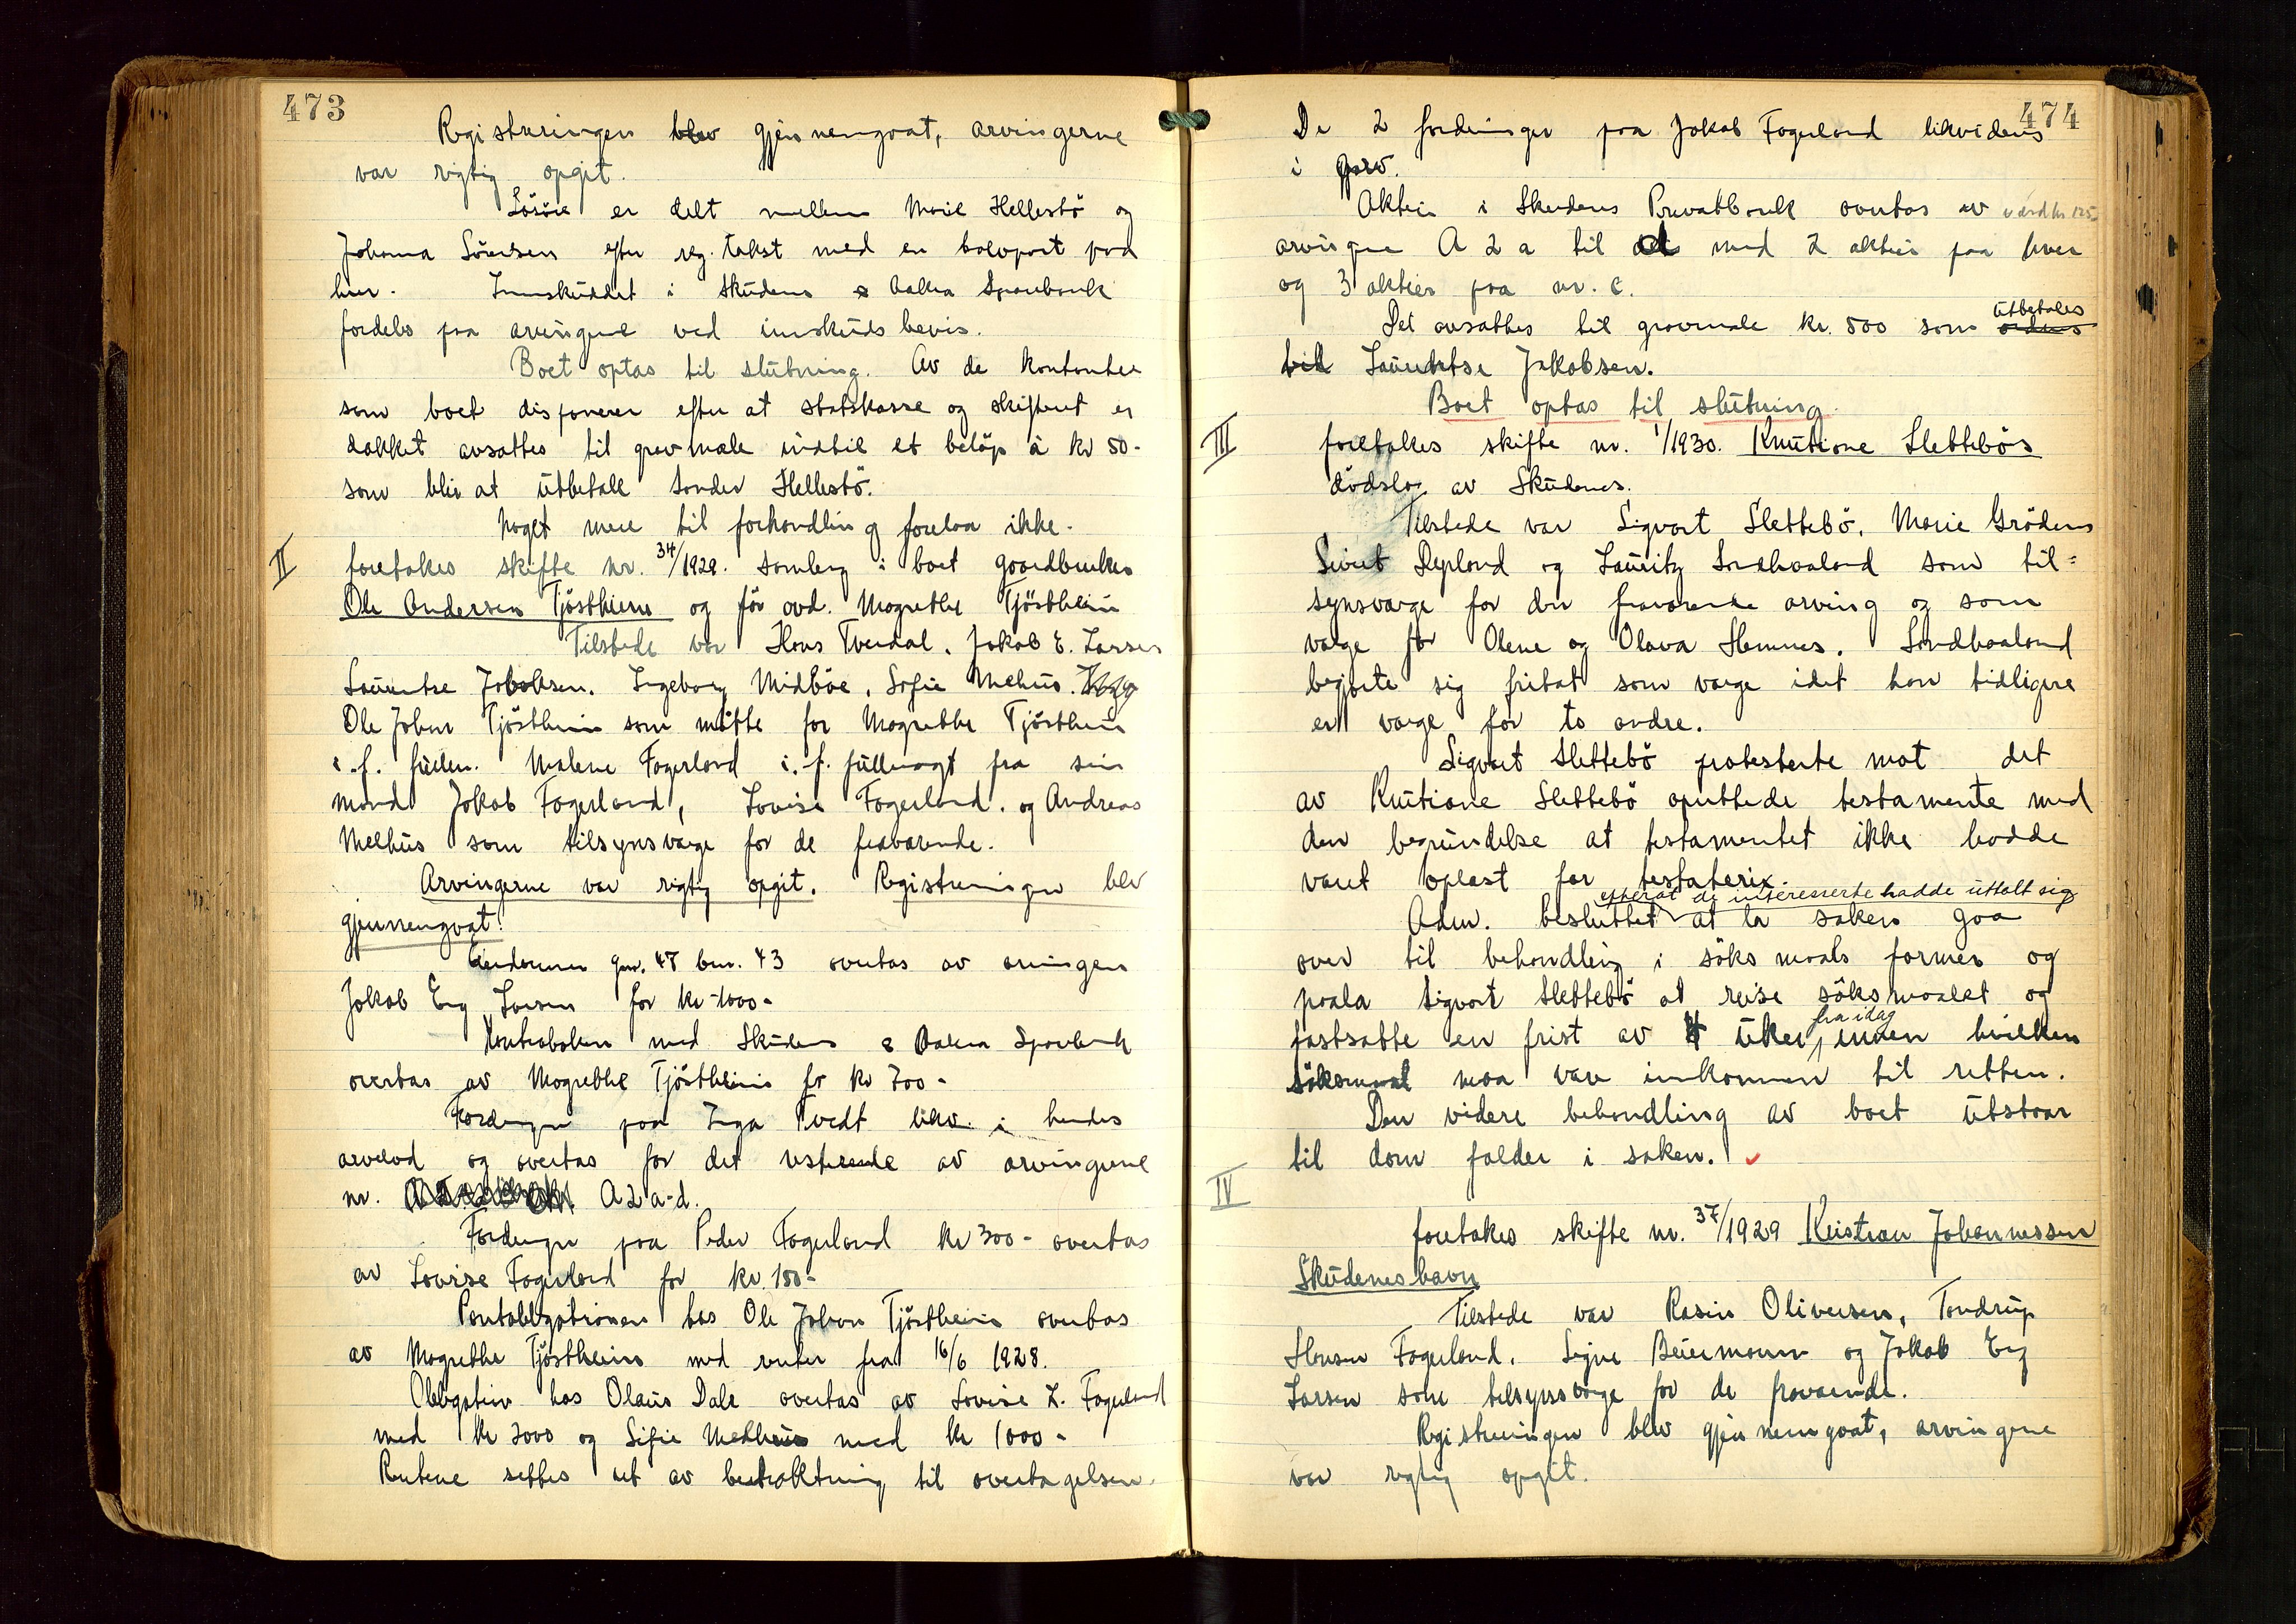 473
Registreringen blev gjennemgaat, arvingerne
var rigtig opgit.
Lösöre er delt mellem Marie Hellestö og
Johanna Sörensen efter reg. takst med en halvpart paa
hver. Innskuddet i Skudenes & Aakra Sparebank
fordeles paa arvingene ved inskudsbevis.
Boet optas til slutning. Av de kontanter
som boet disponerer efter at statskasse og skifteret er
dækket avsattes til gravmæle indtil et belöp à kr 50-
som blir at utbetale Sander Hellestö.
Noget mere til forhandling forelaa ikke.
II foretakes skifte nr. 34/1929. samlag i boet gaardbruker
Ole Andersen Tjöstheim og för avd. Magrethe Tjöstheim
Tilstede var Hans Tveidal, Jakob E. Larsen
Lauentse Jakobsen. Ingeborg Midböe, Sofie Melhus.
Ole Johan Tjöstheim som mötte for Magrethe Tjöstheim
i.f. fullm. Malene Fagerland i.f. fullmagt fra sin
mand Jakob Fagerland, Lovise Fagerland. og Andreas
Melhus som tilsynsværge for de fraværende.
Arvingerne var rigtig opgit. Registreringen blev
gjennemgaat.
Eiendommen gnr. 47 bnr. 43 overtas av arvingen
Jakob Erg Larsen for kr-1000-
Kontraboken med Skudenes & Aakra Sparebank
overtas av Magrethe Tjöstheim for kr 700-
Fordringen paa Inga Tvedt likv. i hendes
arvelod og overtas for det resterende av arvingerne
nr. A2a-d.
Fordringen paa Peder Fagerland kr 300- overtas
av Lovise Fagerland for kr. 100-
Pantobligationen hos Ole Johan Tjöstheim overtas
av Magrethe Tjöstheim med renter fra 16/6 1928.
Obligation hos Olaus Dale overtas av Lovise L. Fagerland
med kr 2000 og Sofie Melhus med kr 1000-
Rentene settes ut av betraktning til overtagelsen.
474
De 2 fordringer paa Jakob Fagerland likvideres
i arv.
Aktier i Skudenes Privatbank overtas av værd kr 125
arvingene A 2 a til d med 2 aktier paa hver
og 3 aktier paa nr. c.
Det avsattes til gravmæle kr. 500 som ordnes utbetales
til Lauentse Jakobsen.
Boet optas til slutning.
III foretakes skifte nr. 1/1930. Knutiane Slettebös
dödsbo av Skudenes.
Tilstede var Sigvart Slettebö, Marie Grödem
Sivert Repland og Lauritz Sandhaaland som til=
synsværge for den fraværende arving og som
værge for Olene og Olava Hemnes. Sandhaaland
begjærte sig fritat som værge idet han tidligere
er værge for to andre.
Sigvart Slettebö protesterte mot det
av Knutiane Slettebö oprettede testamente med
den begrundelse at testamentet ikke hadde
været oplæst for testaterix.
efterat de interesserte hadde uttalt sig
Adm. besluttet at la saken gaa
over til behandling i söksmaals former og
paala Sigvart Slettebö at reise söksmaalet og
fra idag
fastsatte en frist av 4 uker, innen hvilken
söksmaal maa være innkommen til retten.
Den videre behandling av boet utstaar
til dom falder i saken.
IV
foretakes skifte nr. 37/1929 Kristian Johannessen
Skudeneshavn
Tilstede var Rasin Oliversen, Tandrup
Hansen Fagerland. Signe Beiermann og Jakob Erg
Larsen som tilsynsværge for de fraværende.
Registreringen blev gjennemgaat, arvingene
var rigtig opgit.